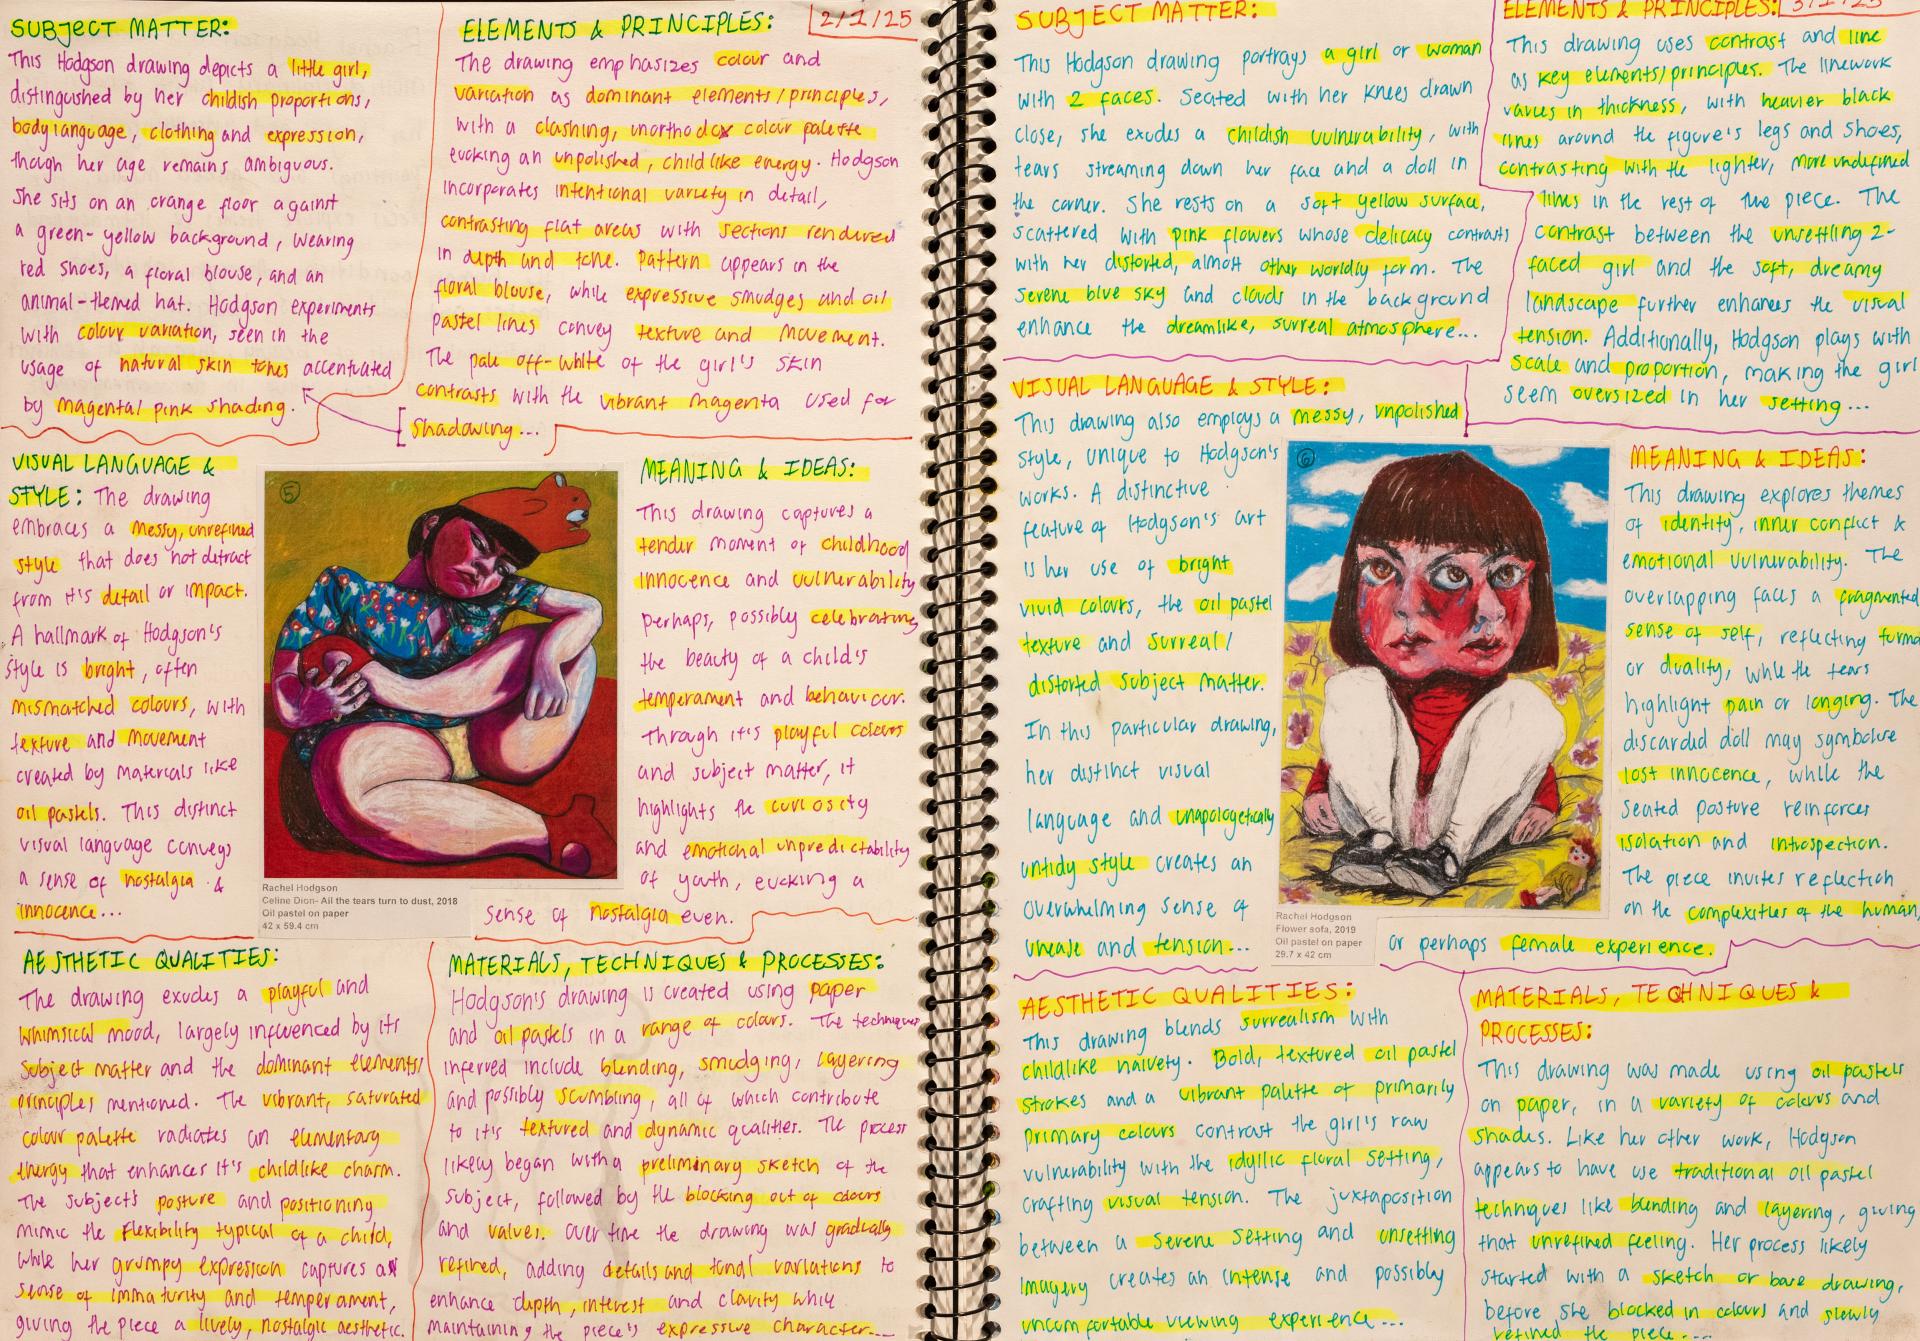 SUBJECT MATTER:
This Hodgson drawing depicts a little girl,
distinguished by her childish proportions,
body language, clothing and expression,
though her age remains ambiguous.
She sits on an orange floor against
a green-yellow background, wearing
red shoes, a floral blouse, and an
animal-themed hat. Hodgson experiments
with colour variation, seen in the
usage of natural skin tones accentated
by magental pink shading.
ELEMENTS & PRINCIPLES:
2/1/25
The drawing emphasizes colour and
variation as dominant elements/principles,
with a clashing, unorthodox colour palette
evoking an unpolished, childlike energy. Hodgson
incorporates intentional variety in detail,
contrasting flat areas with sections rendered
in depth and tone. Pattern appears in the
floral blouse, while expressive smudges and oil
pastel lines convey texture and movement.
The pale off-white of the girl's skin
contrasts with the vibrant magenta used for
shadowing...
VISUAL LANGUAGE &
STYLE: The drawing
embraces a messy, unrefined
style that does not detract
from it's detail or impact.
A hallmark of Hodgson's
style is bright, often
mismatched colours, with
texture and movement
created by materials like
oil pastels. This distinct
visual language conveys
a sense of nostalgia &
innocence...
5
Rachel Hodgson
Celine Dion- All the tears turn to dust, 2018
Oil pastel on paper
42 x 59.4 cm
MEANING & IDEAS:
This drawing captures a
tender moment of childhood
innocence and vulnerability
perhaps, possibly celebrating
the beauty of a child's
temperament and behaviour.
Through it's playful colours
and subject matter, it
highlights the curiosity
and emotional unpredictability
of youth, evoking a
sense of nostalgia even.
AESTHETIC QUALITIES:
The drawing exudes a playful and
whimsical mood, largely influenced by its
subject matter and the dominant elements/
principles mentioned. The vibrant, saturated
colour palette radiates an elementary
energy that enhances it's childlike charm.
The subject's posture and positioning
mimic the flexibility typical of a child,
while her grumpy expression captures a
sense of immaturity and temperament,
giving the piece a lively, nostalgic aesthetic.
MATERIALS, TECHNIQUES & PROCESSES:
Hodgson's drawing is created using paper
and oil pastels in a range of colours. The techniques
inferred include blending, smudging, layering
and possibly scumbling, all of which contribute
to it's textured and dynamic qualities. The process
likely began with a preliminary sketch of the
subject, followed by the blocking out of colours
and values. Over time the drawing was gradually
refined, adding details and tonal variations to
enhance depth, interest and clarity while
maintaining the piece's expressive character...
SUBJECT MATTER:
This Hodgson drawing portrays a girl or woman
with 2 faces. Seated with her knees drawn
close, she exudes a childish vulnerability, with
tears streaming down her face and a doll in
the corner. She rests on a soft yellow surface,
scattered with pink flowers whose delicacy contrasts
with her distorted, almost other worldly form. The
serene blue sky and clouds in the background
enhance the dreamlike, surreal atmosphere...
ELEMENTS & PRINCIPLES:
3/1/25
This drawing uses contrast and line
as key elements/principles. The linework
varies in thickness, with heavier black
lines around the figure's legs and shoes,
contrasting with the lighter, more undefined
lines in the rest of the piece. The
contrast between the unsettling 2-
faced girl and the soft, dreamy
landscape further enhances the visual
tension. Additionally, Hodgson plays with
scale and proportion, making the girl
seem oversized in her setting...
VISUAL LANGUAGE & STYLE:
This drawing also employs a messy, unpolished
style, unique to Hodgson's
works. A distinctive
feature of Hodgson's art
is her use of bright
vivid colours, the oil pastel
texture and surreal/
distorted subject matter.
In this particular drawing,
her distinct visual
language and unapologetically
untidy style creates an
overwhelming sense of
unease and tension...
6
Rachel Hodgson
Flower sofa, 2019
Oil pastel on paper
29.7 x 42 cm
MEANING & IDEAS:
This drawing explores themes
of identity, inner conflict &
emotional vulnerability. The
overlapping faces a fragmented
sense of self, reflecting
or duality, while the tears
highlight pain or longing. The
discarded doll may symbolise
lost innocence, while the
seated posture reinforces
isolation and introspection.
The piece invites reflection
on the complexities of the human,
or perhaps female experience.
AESTHETIC QUALITIES:
This drawing blends surrealism with
childlike naivety. Bold, textured oil pastel
strokes and a vibrant palette of primarily
primary colours contrast the girl's raw
vulnerability with the idyllic floral setting,
crafting visual tension. The juxtaposition
between a serene setting and unsetting
imagery creates an intense and possibly
uncomfortable viewing experience...
MATERIALS, TECHNIQUES &
PROCESSES:
This drawing was made using oil pastels
on paper, in a variety of colours and
shades. Like her other work, Hodgson
appears to have use traditional oil pastel
techniques like blending and layering, giving
that unrefined feeling. Her process likely
started with a sketch or base drawing,
before she blocked in colours and slowly
refined the piece...